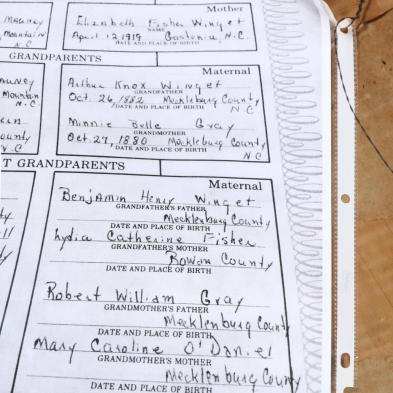 Mother
Mauney Elizabeth Fisher Winget
NAME
Mountain April 12, 1919 Gastonia, N.C.
N.C. DATE AND PLACE OF BIRTH
GRANDPARENTS
Maternal
Arthur Knox Winget
GRANDFATHER
Mountain Oct. 26, 1882 Mecklenburg County
N.C DATE AND PLACE OF BIRTH N.C
Minnie Belle Gray
GRANDMOTHER
Oct. 27, 1880 Mecklenburg County
DATE AND PLACE OF BIRTH NC
T GRANDPARENTS
Maternal
Benjamin Henry Winget
GRANDFATHER'S FATHER
Mecklenburg County
DATE AND PLACE OF BIRTH
Lydia Catherine Fisher
GRANDFATHER'S MOTHER
Rowan County
DATE AND PLACE OF BIRTH
Robert William Gray
GRANDMOTHER'S FATHER
Mecklenburg County
DATE AND PLACE OF BIRTH
Mary Caroline O'Daniel
GRANDMOTHER'S MOTHER
Mecklenburg County
DATE AND PLACE OF BIRTH